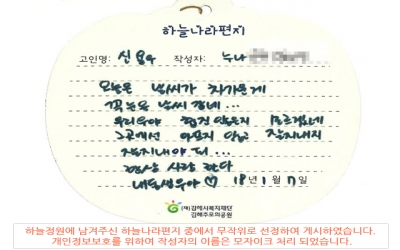 하늘나라편지
고인명: 신 작성자: 누나
오늘은 날씨가 차가운게
꾹눈온 날씨 같네...
우리 우야 행진 있는지 모르겠네
그곳에선 아프지 않고 잘지내지
잘지내야 돼...
항상 사랑 한다
내동생우야♡ 18년 1월 17일
(재)김해시복지재단
김해추모의공원
하늘정원에 남겨주신 하늘나라편지 중에서 무작위로 선정하여 게시하였습니다.
개인정보보호를 위하여 작성자의 이름은 모자이크 처리 되었습니다.